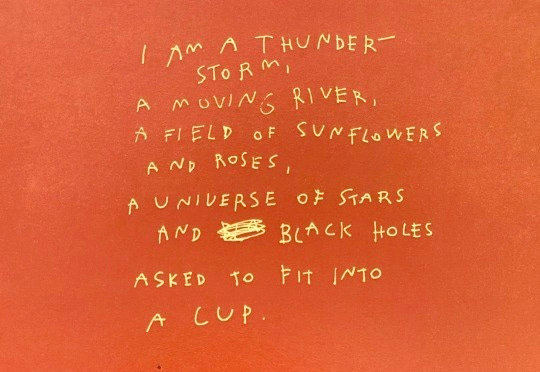 I AM A THUNDER-
STORM,
A MOVING RIVER,
A FIELD OF SUNFLOWERS
AND ROSES,
A UNIVERSE OF STARS
AND BLACK HOLES
ASKED TO FIT INTO
A CUP.